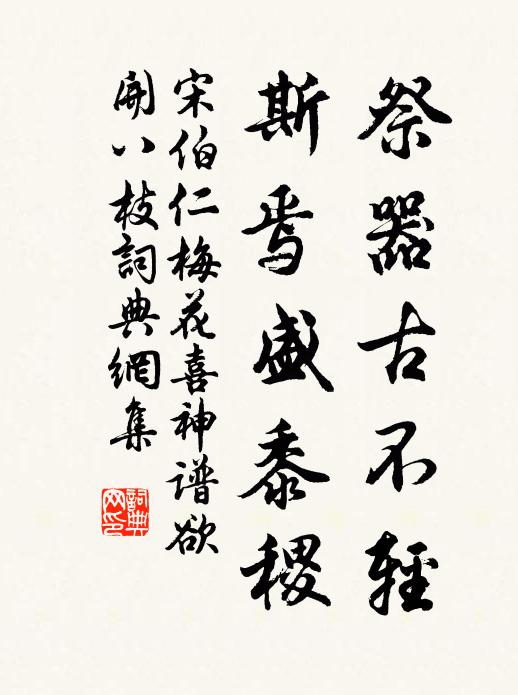 祭器古不輕
斯焉盛黍稷
宋伯仁梅花喜神譜欲
開八枝詞典網集
詞典网印